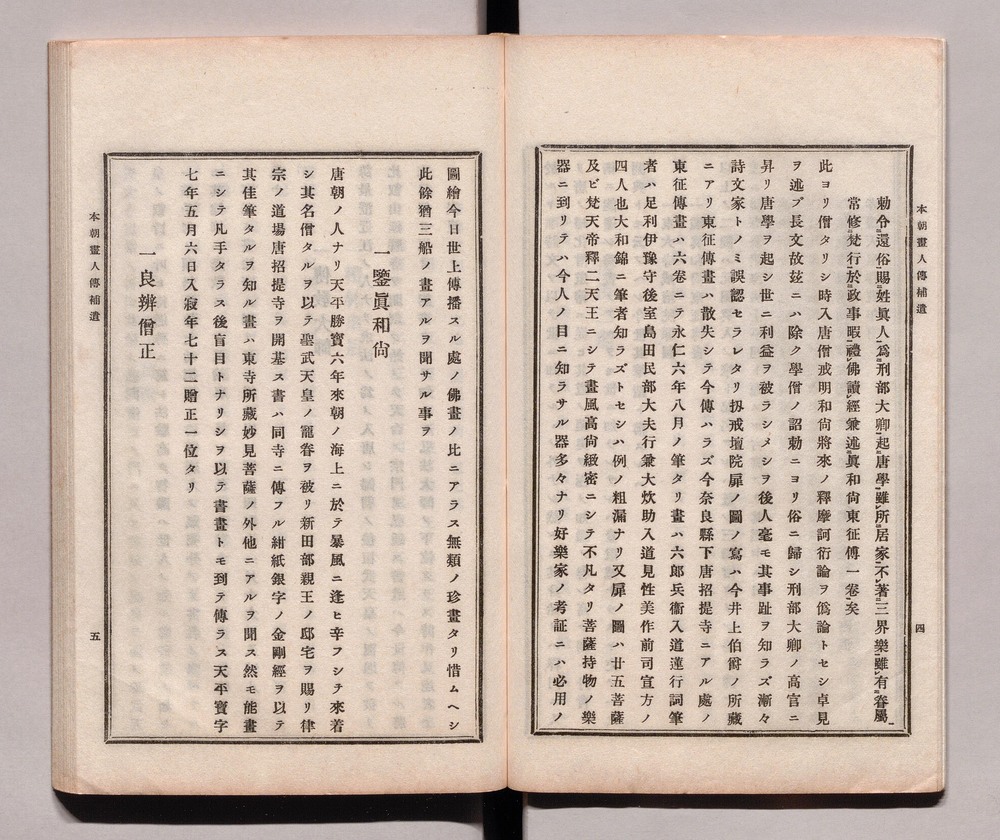 本朝畫人傳補遺
四
勅令還俗賜姓眞人爲刑部大卿起唐學雖所居家不著三界樂雖有眷屬
常修梵行於政事暇禮佛讀經兼述眞和尙東征傳一卷矣
此ヨリ僧タリシ時入唐僧戒明和尙將來ノ釋摩訶衍論ヲ僞論トセシ卓見
ヲ述ブ長文故玆ニハ除ク學僧ノ詔勅ニヨリ俗ニ歸シ刑部大卿ノ高官ニ
昇リ唐學ヲ起シ世ニ利益ヲ被ラシメシヲ後人毫モ其事趾ヲ知ラズ漸々
詩文家トノミ誤認セラレタリ扨戒壇院扉ノ圖ノ寫ハ今井上伯爵ノ所藏
ニアリ東征傳畫ハ散失シテ今傳ハラズ今奈良縣下唐招提寺ニアル處ノ
東征傳畫ハ六卷ニテ永仁六年八月ノ筆タリ畫ハ六郎兵衞入道蓮行詞筆
者ハ足利伊豫守後室島田民部大夫行兼大炊助入道見性美作前司宣方ノ
四人也大和錦ニ筆者知ラズトセシハ例ノ粗漏ナリ又扉ノ圖ハ廿五菩薩
及ビ梵天帝釋二天王ニシテ畫風高尙緻密ニシテ不凡タリ菩薩持物ノ樂
器ニ到リテハ今人ノ目ニ知ラサル器多々ナリ好樂家ノ考証ニハ必用ノ
圖繪今日世上傳播スル處ノ佛畫ノ比ニアラス無類ノ珍畫タリ惜ムヘシ
此餘猶三船ノ畫アルヲ聞サル事ヲ
一鑒眞和尙
唐朝ノ人ナリ天平勝寶六年來朝ノ海上ニ於テ暴風ニ逢ヒ辛フシテ來着
シ其名僧タルヲ以テ聖武天皇ノ寵眷ヲ被リ新田部親王ノ邸宅ヲ賜リ律
宗ノ道場唐招提寺ヲ開基ス書ハ同寺ニ傳フル紺紙銀字ノ金剛經ヲ以テ
其佳筆タルヲ知ル畫ハ東寺所藏妙見菩薩ノ外他ニアルヲ聞ス然モ能畫
ニシテ凡手タラス後盲目トナリシヲ以テ書畫トモ到テ傳ラス天平寶字
七年五月六日入寂年七十二贈正一位タリ
一良辨僧正
本朝畫人傳補遺
五